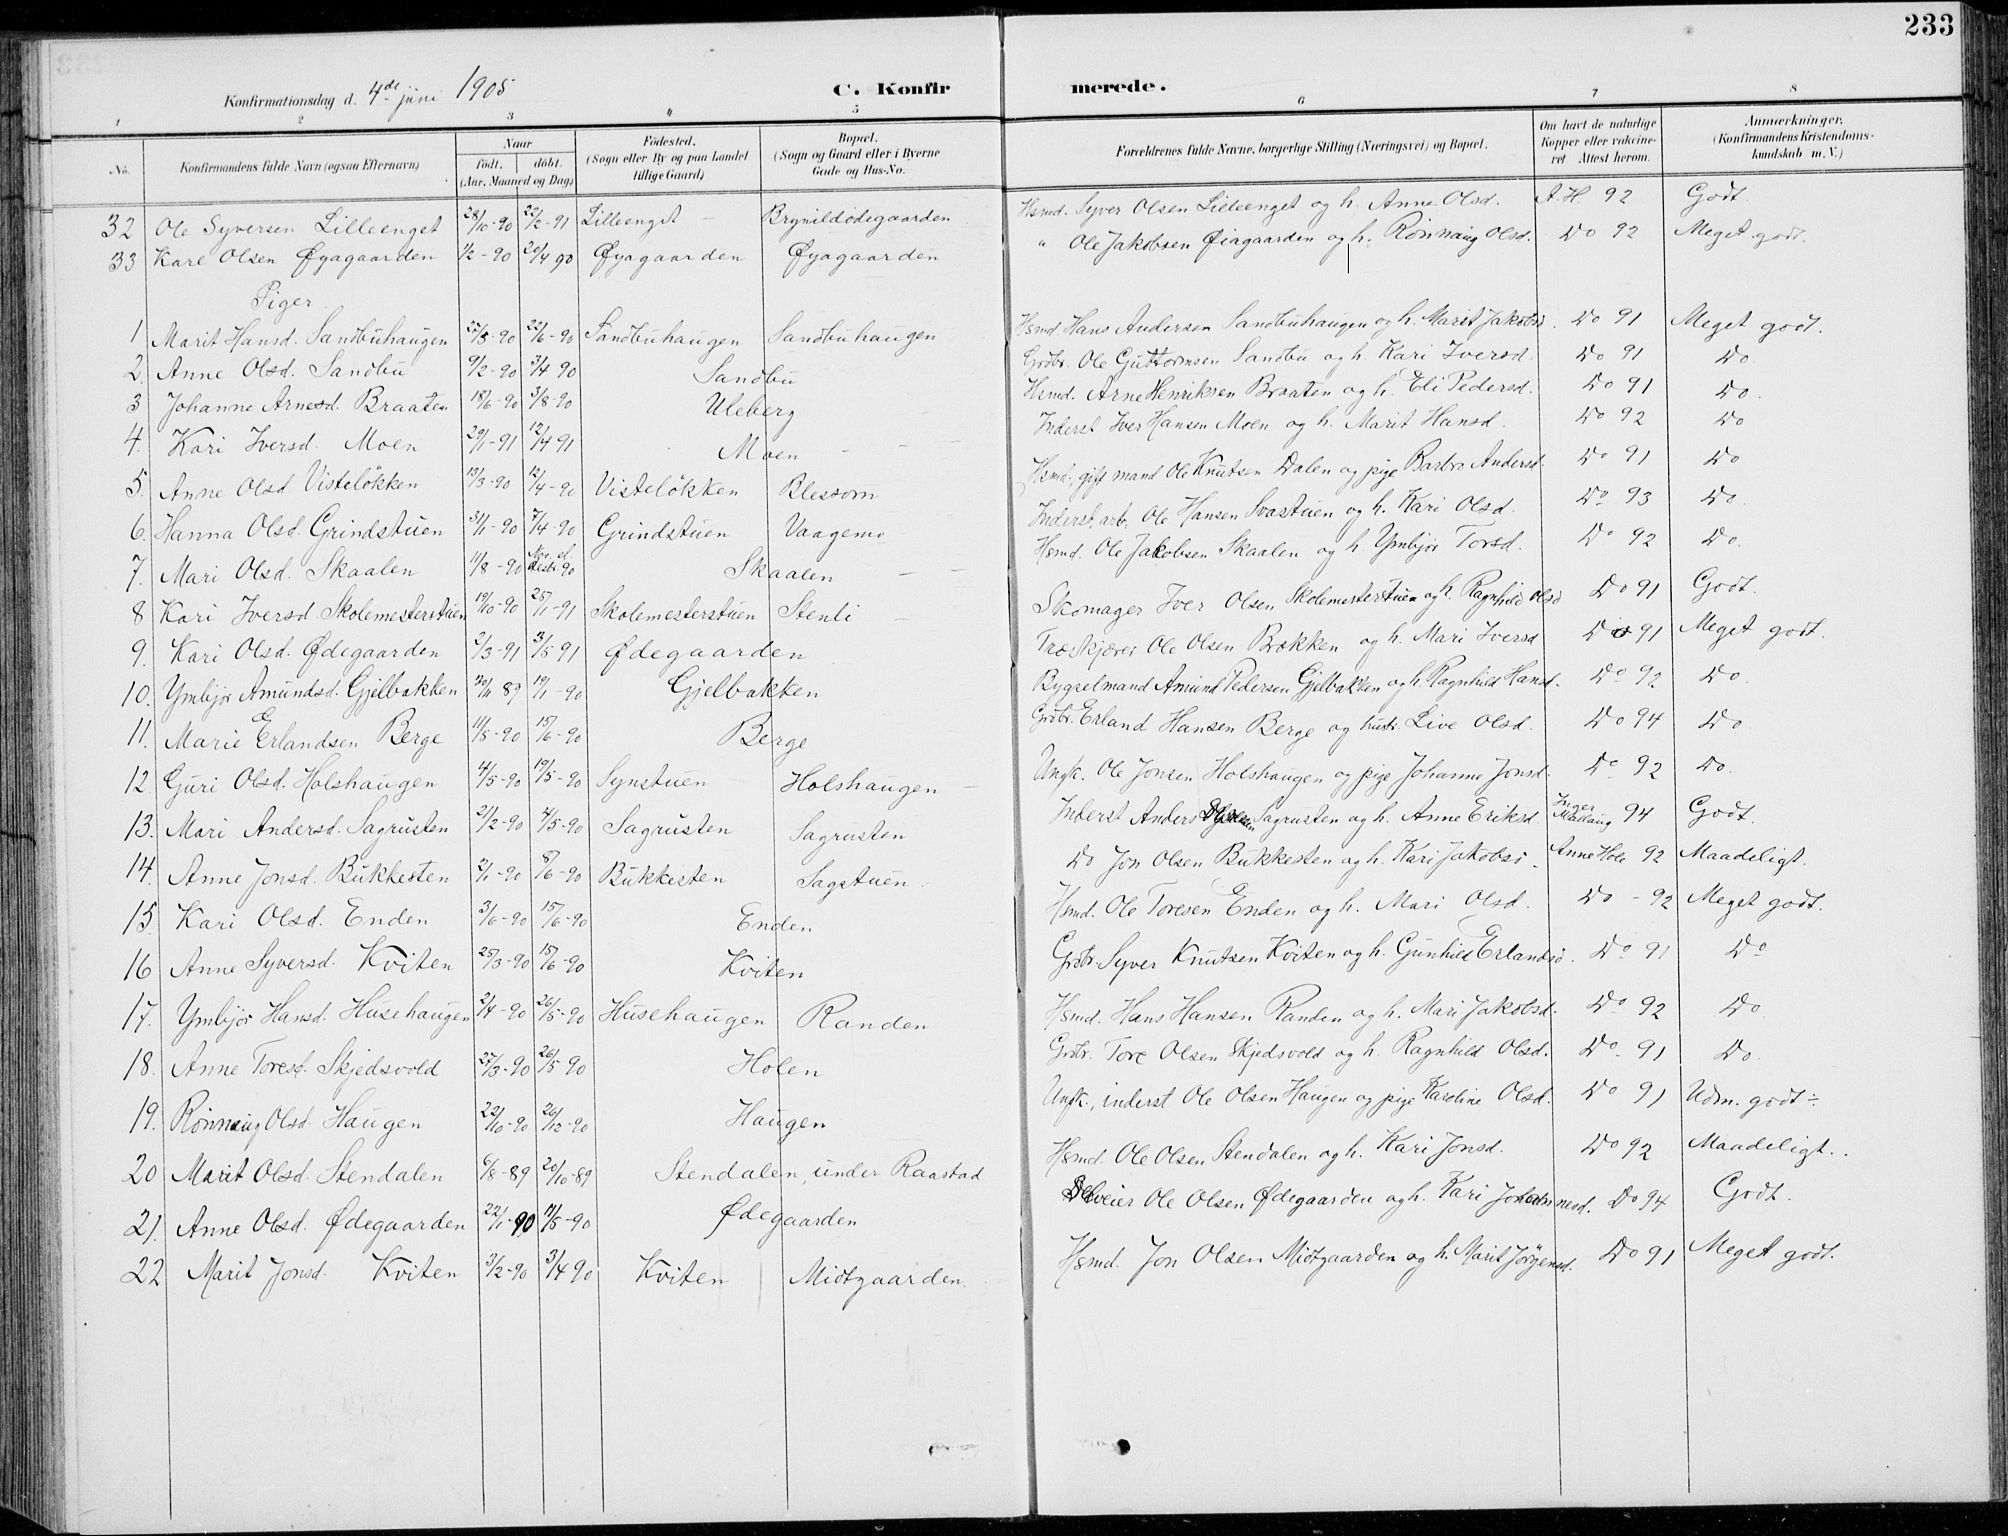 233
Konfirmationsdag d. 4de juni 1905 C. Konfirmerede.
1 2 3 4 5 6 7 8
No. Konfirmandens fulde Navn (ogsaa Efternavn) Naar født. døbt. (Aar, Maaned og Dag) Fødested. (Sogn eller By og paa Landet tillige Gaard) Bopæl. (Sogn og Gaard eller i Byerne Gade og Hus-No. Forældrenes fulde Navne, borgerlige Stilling (Næringsvei) og Bopæl. Om havt de naturlige Kopper eller vakcineret Attest herom. Anmærkninger. (Konfirmandens Kristendomskundskab m. V.)
32 Ole Syversen Lilleenget 28/10-90 22/2-91 Lilleenget - Brynildødegaarden Hsmd. Syver Olsen Lilleenget og h. Anne Olsd. A.H. 92 Godt.
33 Kare Olsen Øyagaarden 1/2-90 20/4 90 Øyagaarden Øyagaarden " Ole Jakobsen Øiagaarden og h. Rönnaug Olsd. Do 92 Meget godt.
Piger.
1 Marit Hansd. Sandbuhaugen 27/5-90 22/6-90 Sandbuhaugen Sandbuhaugen Hsmd Hans Andersen Sandbuhaugen og h. Marit Jakobsd. Do 91 Meget godt.
2. Anne Olsd. Sandbu 9/2-90 3/4 90 Sandbu Grdbr. Ole Guttormsen Sandbu og h. Kari Iversd. Do 91 Do
3 Johanne Arnesd. Braaten 18/6-90 3/8-90 Uleberg Hsmd. Arne Henriksen Braaten og h. Eli Pedersd. Do 91 Do.
4. Kari Iversd. Moen 29/1-91 12/4 91 Moen - Inderst Iver Hansen Moen og h. Marit Hansd. Do 92 Do
5. Anne Olsd Visteløkken 13/3-90 12/4-90 Visteløkken Blessom Hsmd., gift mand Ole Knutsen Dalen og pige Barbro Andersd. Do 91 Do
6. Hanna Olsd. Grindstuen 31/1-90 7/4-90 Grindstuen Vaagemo Inderst, arb. Ole Hansen Svastuen og h. Kari Olsd. Do 93 Do.
7. Mari Olsd. Skaalen 11/8-90 Nov. el. Desbr.90 Skaalen Hsmd. Ole Jakobsen Skaalen og h. Ymbjør Torsd. Do 92 Do.
8 Kari Iversd Skolemesterstuen 19/10-90 25/1-91 Skolemesterstuen Stenli - Skomager Iver Olsen Skolemesterstuen og h. Ragnhild Olsd Do 91 Godt.
9. Kari Olsd. Ødegaarden 2/3-91 3/5 91 Ødegaarden Træskjærer Ole Olsen Bækken og h. Mari Iversd Do 91 Meget godt.
10. Ymbjør Amundsd. Gjelbakken 20/11 89 19/1-90 Gjelbakken Bygselmand Amund Pedersen Gjelbakken og h. Ragnhild Hansd. Do 92 Do.
11. Marie Erlandsen Berge 11/5-90 15/6-90 Berge Grdbr. Erland Hansen Berge og hustr. Live Olsd. Do 94 Do
12 Guri Olsd. Holshaugen 4/5-90 19/5-90 Synstuen Holshaugen - Ungk. Ole Jonsen Holshaugen og pige Johanne Jonsd. Do 92 Do.
13. Mari Andersd. Sagrusten 21/2-90 4/5-90 Sagrusten Sagrusten Inderst Anders Sagrusten og h. Anne Eriksd. 94 Godt.
14. Anne Jonsd. Bukkesten 2/1-90 8/6-90 Bukkesten Sagstuen. Do Jon Olsen Bukkesten og h. Kari Jakobsd. Anne Hole 92 Maadeligt.
15 Kari Olsd. Enden 3/6-90 15/6-90 Enden Hsmd. Ole Toresen Enden og h. Mari Olsd. Do - 92 Meget godt.
16 Anne Syversd. Kviten 25/3-90 15/6-90 Kviten Grdbr. Syver Knutsen Kviten og h. Gunhild Erlandsd. Do 91 Do
17. Ymbjør Hansd. Husehaugen 2/4-90 26/5-90 Husehaugen Randen Hsmd. Hans Hansen Randen og h. Mari Jakobsd. Do 92 Do
18. Anne Toresd. Skjedsvold 27/3-90 26/5 90 Holen Grdbr. Tore Olsen Skjedsvold og h. Ragnhild Olsd. Do. 91 Do.
19. Rönnaug Olsd. Haugen 22/10-90 26/12-90 Haugen Ungk., inderst Ole Olsen Haugen og pige Karoline Olsd. Do 91 Udm. godt ÷
20 Marit Olsd. Stendalen 6/8-89 20/10-89 Stendalen, under Raastad Hsmd. Ole Olsen Stendalen og h. Kari Jonsd. Do 92 Maadeligt..
21. Anne Olsd. Ødegaarden 22/1-90 11/5-90 Ødegaarden Selveier Ole Olsen Ødegaarden og h. Kari Johannesd. Do 94 Godt.
22 Marit Jonsd. Kviten 3/2-90 3/4 90 Kviten Midtgaarden. Hsmd. Jon Olsen Midtgaarden og h. Marit Jörgensd. Do 91 Meget godt.